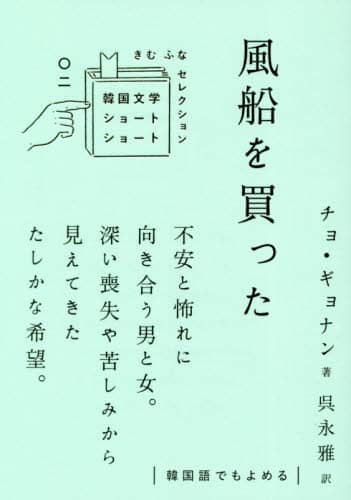 風船を買った
チョ・ギョナン 著
呉永雅 訳
きむ ふな セレクション
韓国文学
ショート
ショート
〇二
不安と怖れに
向き合う男と女。
深い喪失や苦しみから
見えてきた
たしかな希望。
韓国語でもよめる